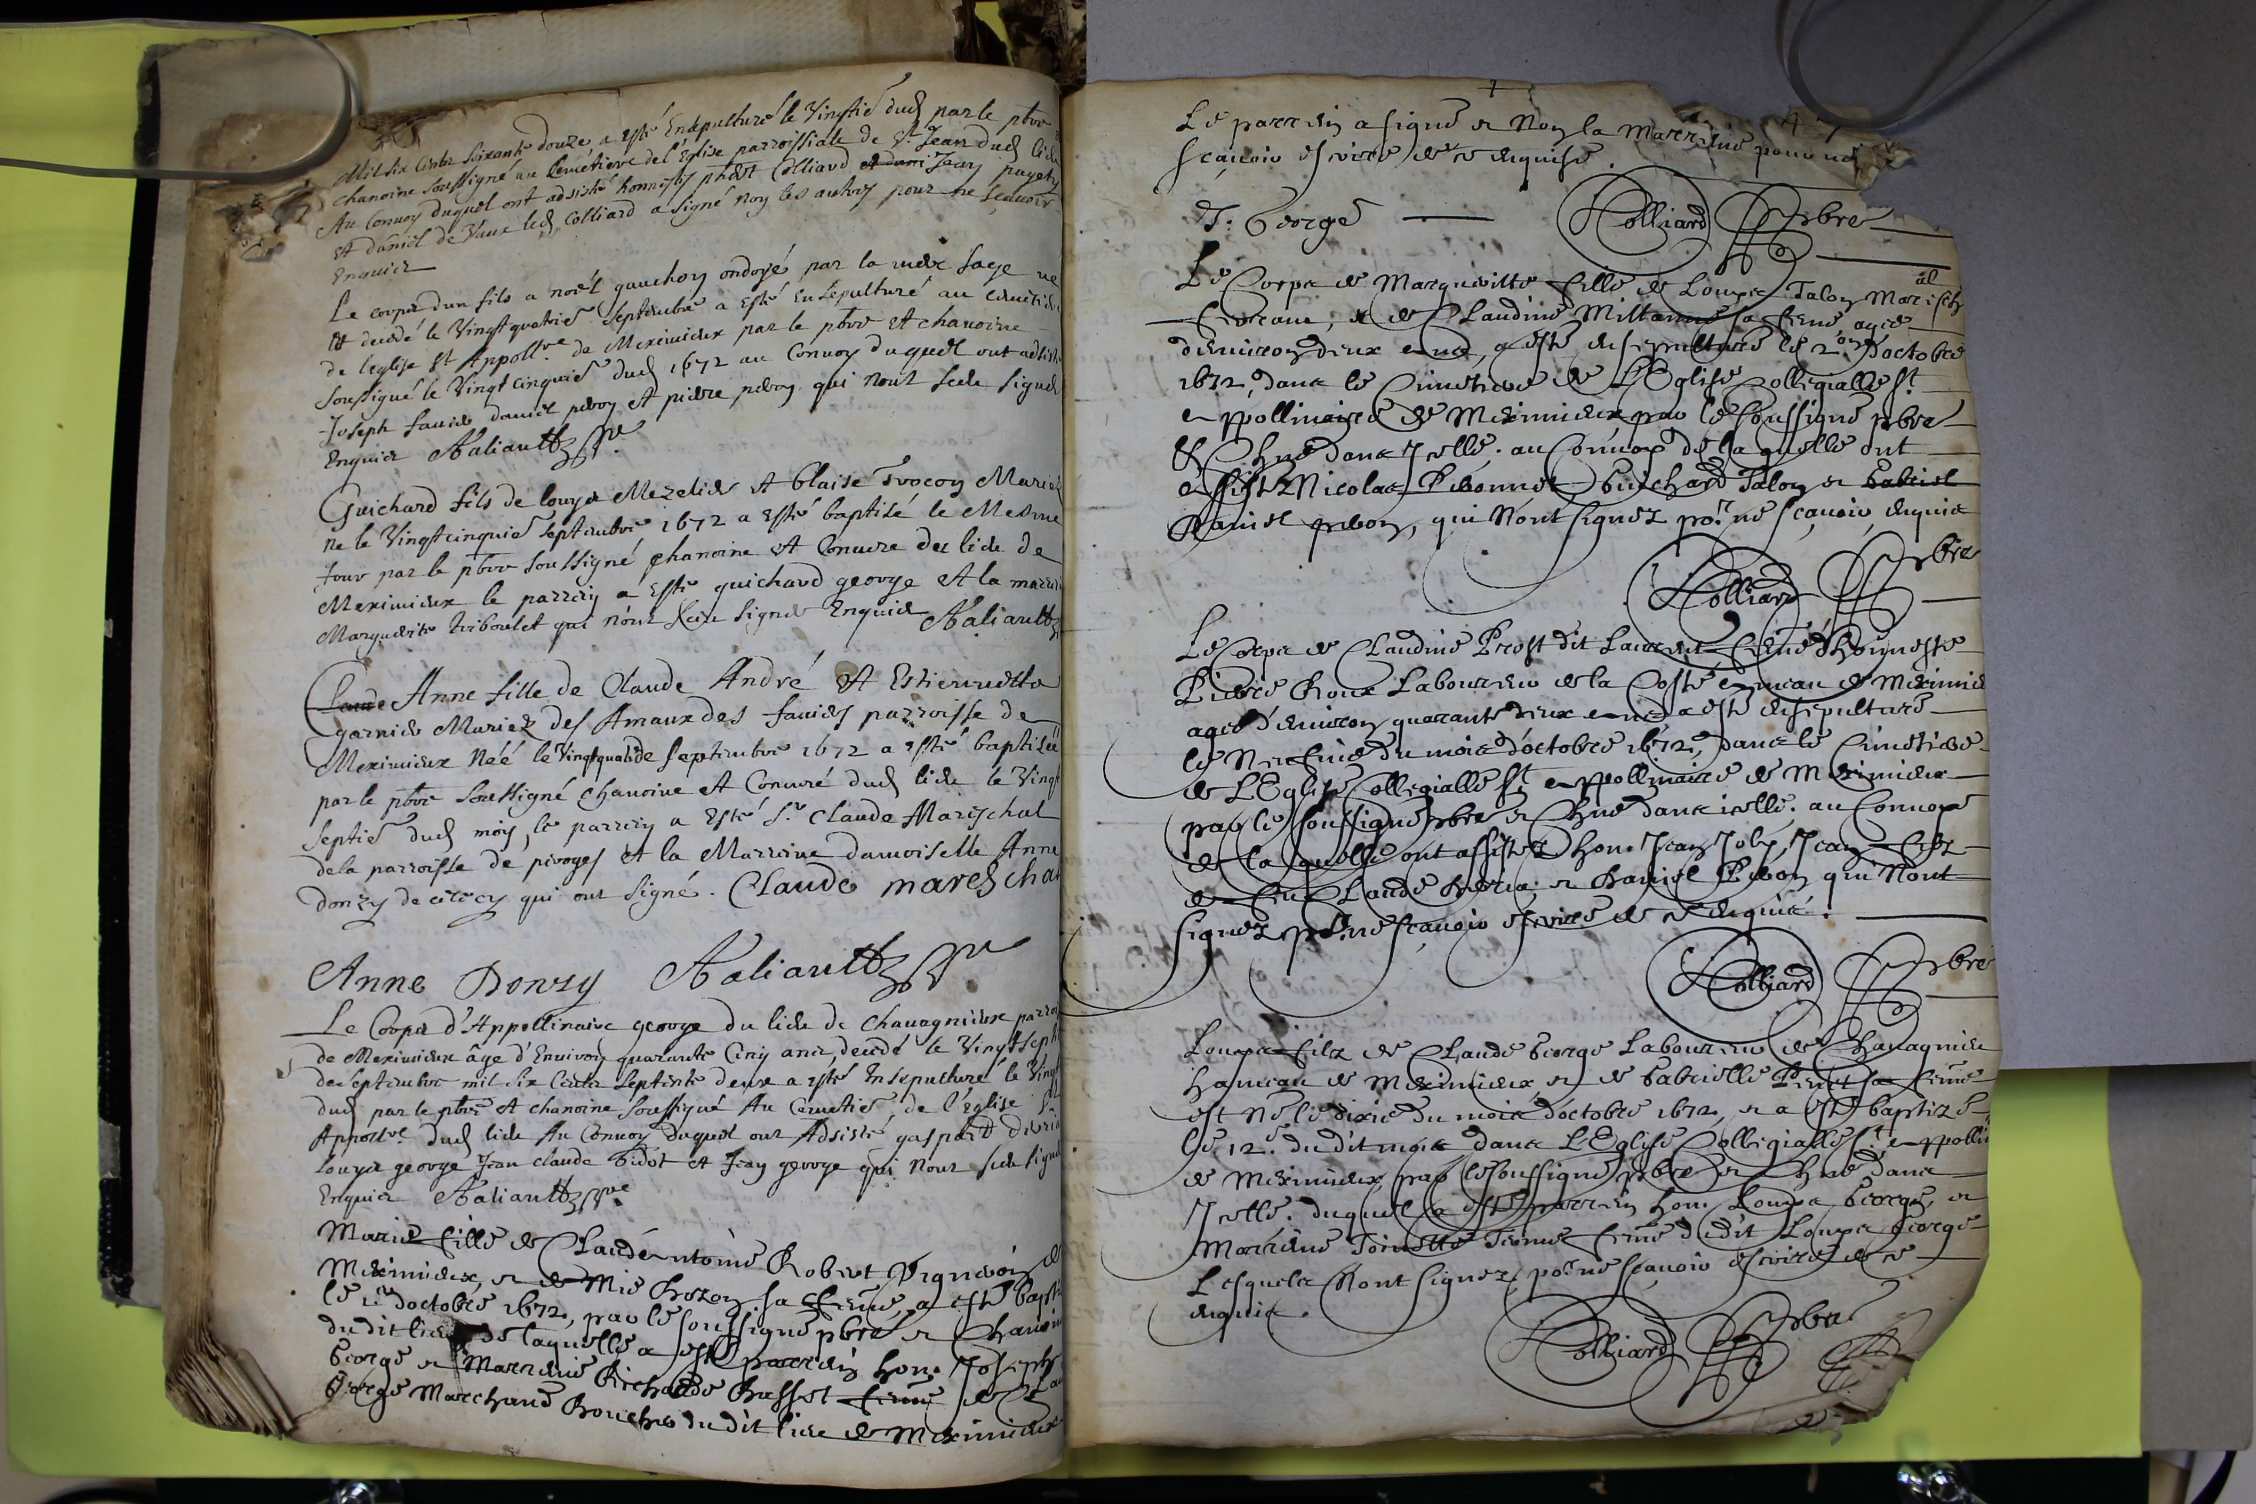 Mil six cents soixante douze a esté Ensepulturé le Vingtie dud par le pbre
chanoine soussigné au Cemetiere de l'Eglise parroissialle de St Jean dud lieu
Au Convoy duquel ont adsisté honnestes Colliard Jean
et daniel de Vaux led Colliard a signé non les autres pour ne scavoir
Enquis
Le corps d'un fils a noël gauchon ondoyé par la mere sage né
et decedé le Vingtquatrie Septembre a Esté Ensepulturé au cemetiere
de l'eglise St Appollre de Meximieux par le pbre et chanoine
soussigné le Vingt cinquie dud 1672 au Convoy duquel ont adsisté
Joseph favier daniel pebon et pierre pebon qui n'ont sceu signer
Enquis Aaliault pbre
Guichard fils de louys Mezelier et blaise Mariez
né le Vingtcinquie septembre 1672 a esté baptisé le Mesme
Jour par le pbre soussigné chanoine et Concuré du lieu de
Meximieux le parrein a Esté guichard george et la marreine
Marguerite triboulet qui n'ont sceu signer Enquis Aaliault
Claude Anne fille de Claude André et Estiennette
garnier Mariez des Amaux des faviers parroisse de
Meximieux Néé le Vingtquatrie septembre 1672 a esté baptisée
par le pbre soussigné chanoine et Concuré dud lieu le Vingt
septie dud mois, le parrein a Esté Sr Claude Marischal
de la parroisse de peroges et la Marreine damoiselle Anne
donzy de qui ont signé. Claude mareschal
Anne Donzy Aaliault pbre
Le Corps d'Appollinaire george du lieu de chavagnieux parroisse
de Meximieux âge d'Environ quarante Cinq ans, decedé le Vingt sept
de septembre mil six Cents septente deux a esté Ensepulturé le Vingt
dud par le pbre et chanoine soussigné Au Cemetie de l'eglise St
Appollre dud lieu Au Convoy duquel ont Adsisté gaspard
Louys george Jean claude bidot et Jean george qui n'ont sceu signer
Enquis Aaliault pbre
Marie fille de Claude antoine Robert Vigneron de
Meximieux, et de Mie Rozon sa feme, a esté baptisée
le 1er d'octobre 1672, par le soussigné pbre et Chanoine
du dit lieu de laquelle a esté parrein hon. Joseph
George et Marreine Richarde Basset feme de Claude
George Marchand Boucher du dit lieu de Meximieux
Le parrein a signé et Non la Marreine pour ne
sçavoir escrire de ce enquise.
J: George Colliard Pbre
Le Corps de Margueritte fille de Louys Talon Mareschal
, et de Claudine Millanne sa feme, agée
d'environ deux ans, a esté ensepulturé le 2 d'octobre
1672, dans le Cimetiere de L'Eglise Collegialle St
appollinaire de Meximieux par le soussigné pbre
& Chne dans Jcelle. au Convoy de laquelle ont
assisté Nicolas Guichard Talon et Gabriel
Daniel pebon, qui N'ont signez por ne sçavoir, enquis
Colliard Pbre
Le Corps de Claudine Prost dit Laurent feme d'honneste
Pierre Roux Laboureur de la Coste hameau de Meximieux
agée d'environ quarante deux ans a esté ensepulturé
le Neufvie du mois d'octobre 1672, dans le Cimetiere
de L'Eglise Collegialle St appollinaire de Meximieux
par le soussigné pbre et Chne dans icelle. au Convoy
de la quelle ont assistez hon. Jean Joly, Jean filz
de feu Claude et Daniel Pebon qui N'ont
signez por ne sçavoir escrire de ce enquis.
Colliard Pbre
Louys filz de Claude George Laboureur de Chavagnieu
hameau de Meximieux et de Gabrielle sa feme
est Né le dixie du mois d'octobre 1672, et a esté baptizé
le 12e du dit mois dans L'Eglise Collegialle St appolli
de Meximieux par le soussigné pbre et Chne dans
Jcelle. duquel a esté parrein hon. Louys George, et
Marreine Toinette feme du dit Louys George
Lesquels N'ont Signez, por ne sçavoir escrire de ce
enquis.
Colliard Pbre